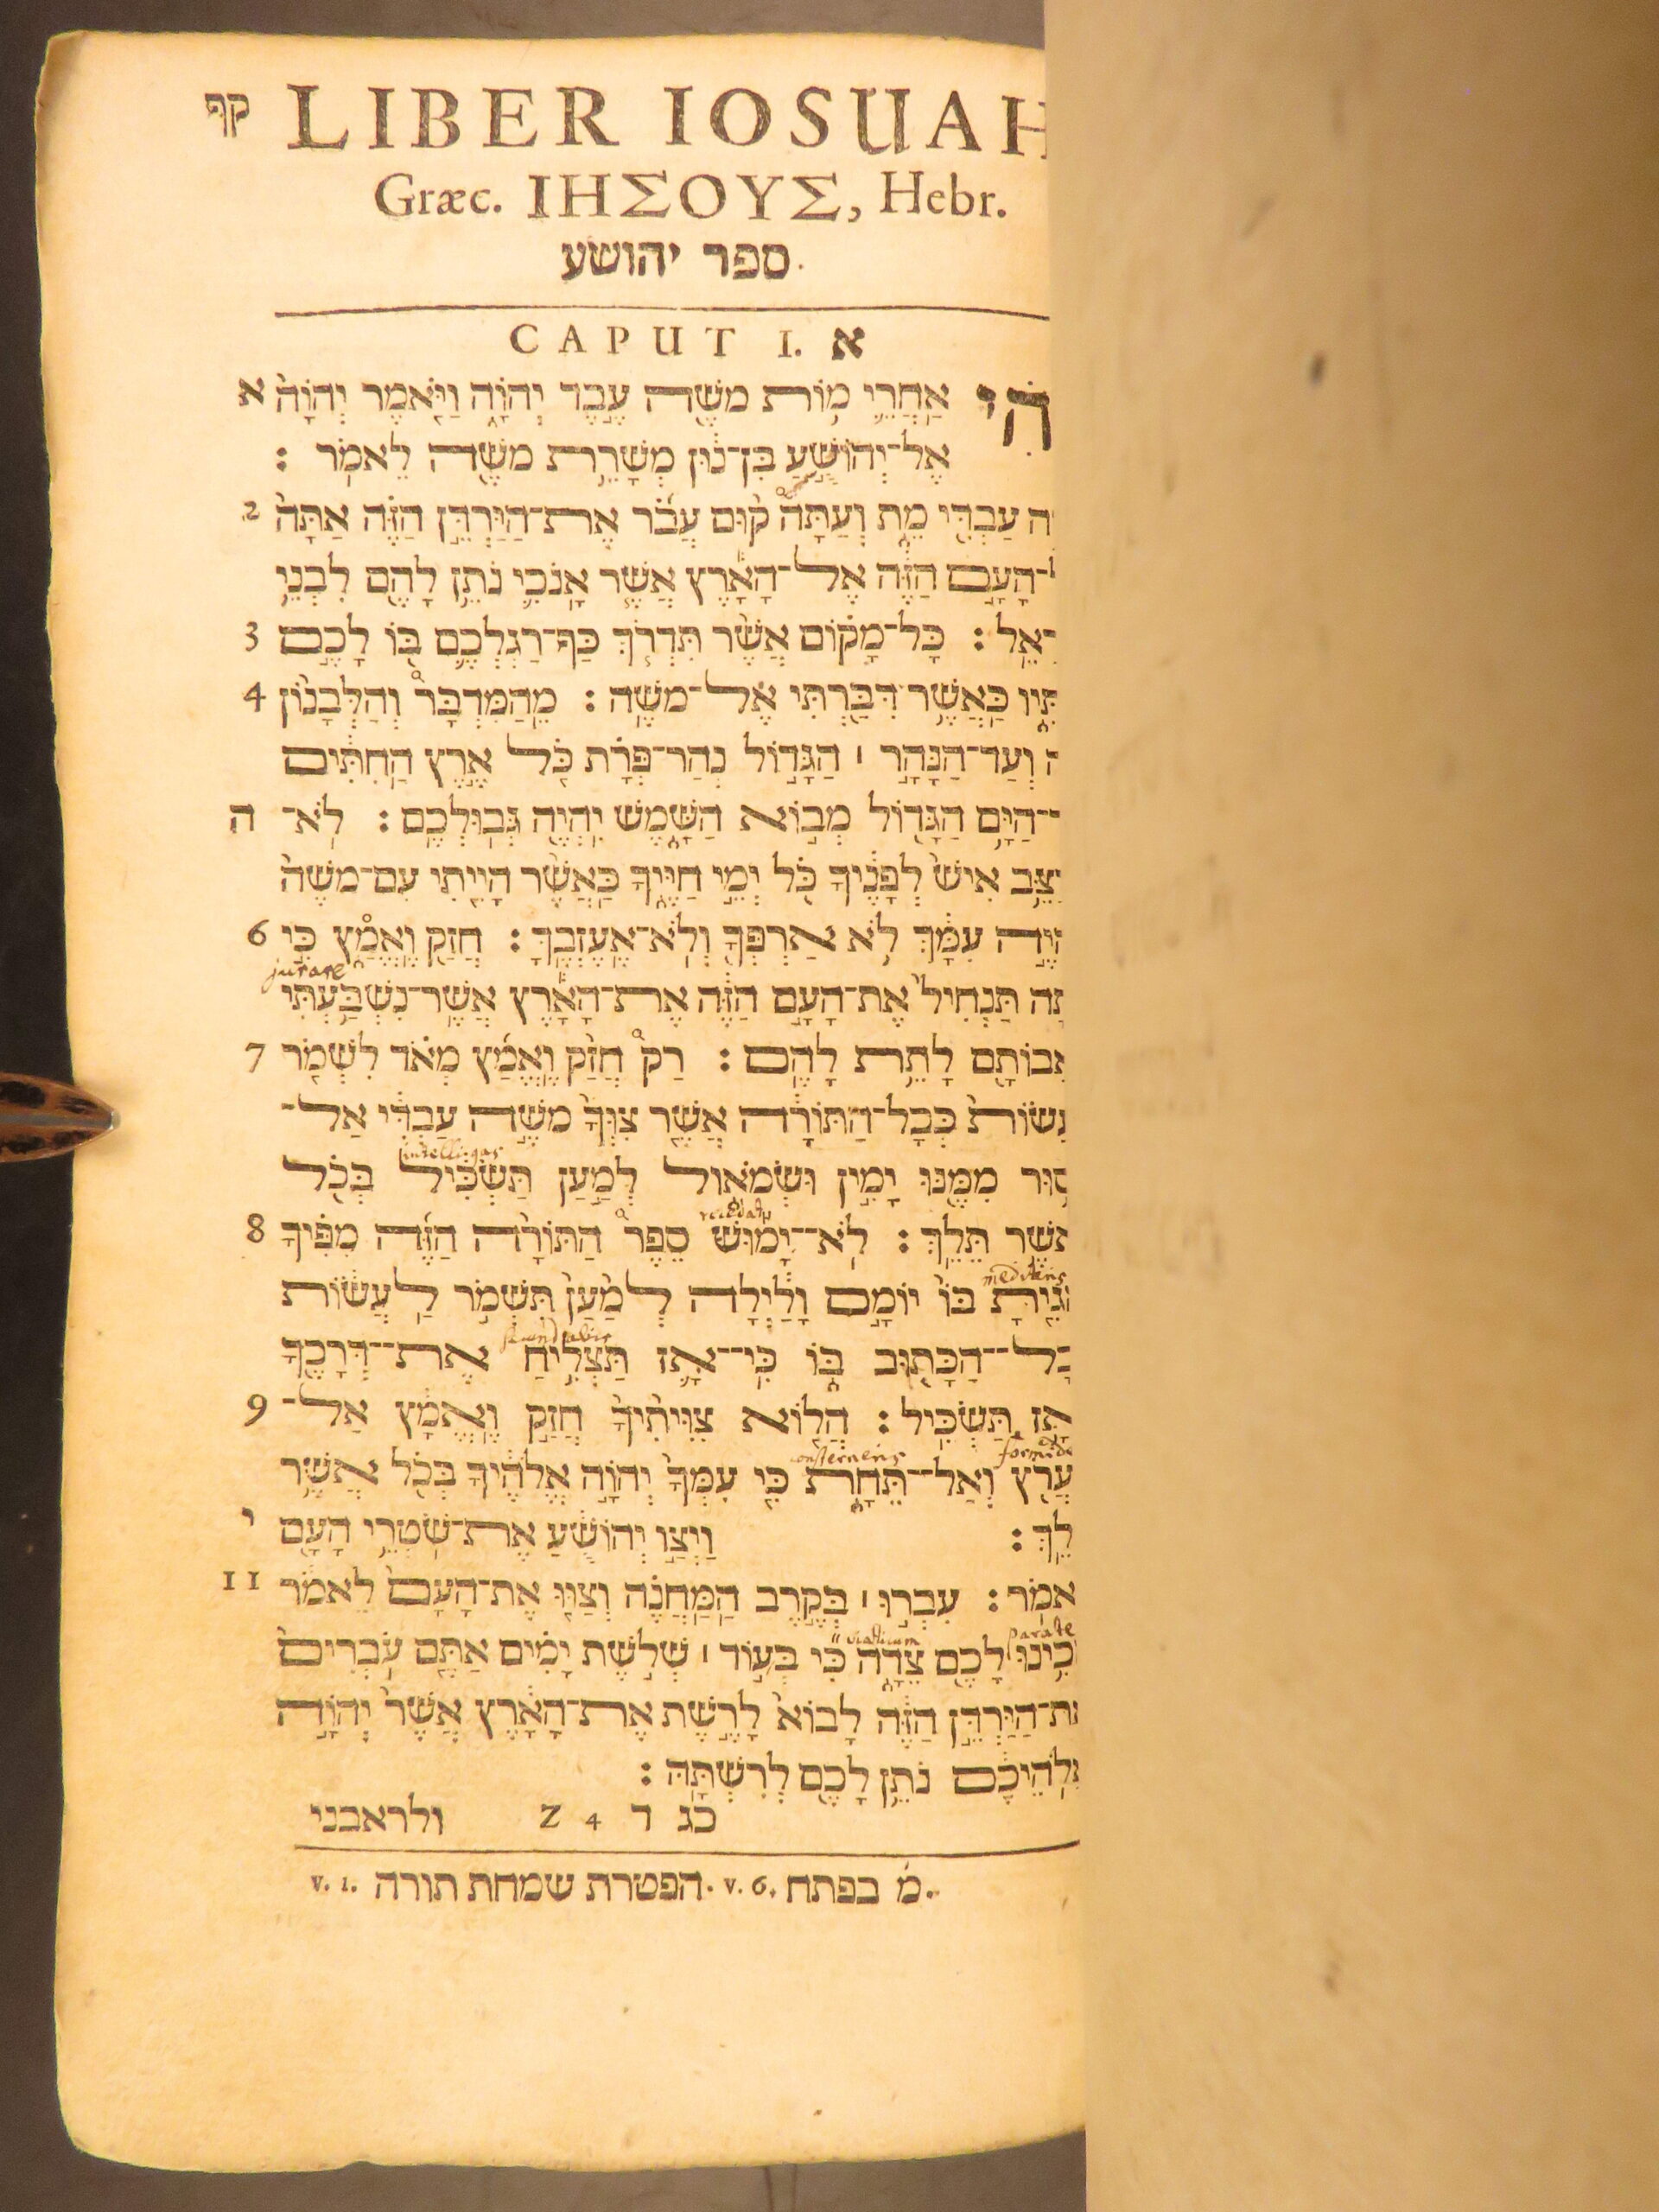 קף LIBER IOSUAH
Græc. ΙΗΣΟΥΣ, Hebr.
ספר יהושע.
CAPUT I. א
אַֽחֲרֵ֛י מ֥וֹת מֹשֶׁ֖ה עֶ֣בֶד יְהוָֹ֑ה וַיֹּ֤אמֶר יְהוָֹה֙ א
אֶל־יְהוֹשֻׁ֣עַ בִּן־נ֔וּן מְשָׁרֵ֥ת מֹשֶׁ֖ה לֵאמֹֽר :
עַבְדִּ֖י מֵ֑ת וְעַתָּה֩ ק֨וּם עֲבֹ֜ר אֶת־הַיַּרְדֵּ֣ן הַזֶּ֗ה אַתָּה֙ 2
הָעָ֣ם הַזֶּ֔ה אֶל־הָאָ֕רֶץ אֲשֶׁ֧ר אָֽנֹכִ֛י נֹתֵ֥ן לָהֶ֖ם לִבְנֵ֥י
כָּל־מָק֗וֹם אֲשֶׁ֨ר תִּדְרֹ֧ךְ כַּֽף־רַגְלְכֶ֛ם בּ֖וֹ לָכֶ֣ם 3
כַּֽאֲשֶׁ֥ר דִּבַּ֖רְתִּי אֶל־מֹשֶֽׁה : מֵֽהַמִּדְבָּר֩ וְהַלְּבָנ֨וֹן 4
וְעַד־הַנָּהָ֣ר ׀ הַגָּד֣וֹל נְהַר־פְּרָ֗ת כֹּ֚ל אֶ֣רֶץ הַֽחִתִּ֔ים
הַיָּ֥ם הַגָּד֖וֹל מְב֣וֹא הַשָּׁ֑מֶשׁ יִֽהְיֶ֖ה גְּבֽוּלְכֶֽם : לֹֽא־ ה
אִישׁ֙ לְפָנֶ֔יךָ כֹּ֖ל יְמֵ֣י חַיֶּ֑יךָ כַּֽאֲשֶׁ֨ר הָיִ֤יתִי עִם־מֹשֶׁה֙
עִמָּ֔ךְ לֹ֥א אַרְפְּךָ֖ וְלֹ֥א אֶֽעֶזְבֶֽךָּ : חֲזַ֖ק וֶֽאֱמָ֑ץ כִּ֣י 6
jurare
תַּנְחִיל֙ אֶת־הָעָ֣ם הַזֶּ֔ה אֶת־הָאָ֕רֶץ אֲשֶׁר־נִשְׁבַּ֥עְתִּי
לָתֵ֥ת לָהֶֽם : רַק֩ חֲזַ֨ק וֶֽאֱמַ֜ץ מְאֹ֗ד לִשְׁמֹ֤ר 7
כְּכָל־הַתּוֹרָ֔ה אֲשֶׁ֤ר צִוְּךָ֙ מֹשֶׁ֣ה עַבְדִּ֔י אַל־
intelligas
מִמֶּ֖נּוּ יָמִ֣ין וּשְׂמֹ֑אול לְמַ֣עַן תַּשְׂכִּ֔יל בְּכֹ֖ל
תֵּלֵֽךְ : לֹֽא־יָמ֡וּשׁ סֵ֩פֶר֩ הַתּוֹרָ֨ה הַזֶּ֜ה מִפִּ֗יךָ 8
mediteris
בּוֹ֙ יוֹמָ֣ם וָלַ֔יְלָה לְמַ֨עַן֙ תִּשְׁמֹ֣ר לַֽעֲשׂ֔וֹת
הַכָּת֖וּב בּ֑וֹ כִּי־אָ֛ז תַּצְלִ֥יחַ אֶת־דְּרָכֶ֖ךָ
תַּשְׂכִּֽיל : הֲל֤וֹא צִוִּיתִ֙יךָ֙ חֲזַ֣ק וֶֽאֱמָ֔ץ אַֽל־ 9
consterneris
וְאַל־תֵּחָ֑ת כִּ֤י עִמְּךָ֙ יְהוָֹ֣ה אֱלֹהֶ֔יךָ בְּכֹ֖ל אֲשֶׁ֥ר
וַיְצַ֣ו יְהוֹשֻׁ֔עַ אֶת־שֹׁטְרֵ֥י הָעָ֖ם י
עִבְר֣וּ ׀ בְּקֶ֣רֶב הַֽמַּֽחֲנֶ֗ה וְצַוּ֤וּ אֶת־הָעָם֙ לֵאמֹ֔ר 11
parate viaticum
לָכֶ֖ם צֵדָ֑ה כִּ֞י בְּע֣וֹד ׀ שְׁלֹ֣שֶׁת יָמִ֗ים אַתֶּם֙ עֹֽבְרִים֙
הַיַּרְדֵּ֣ן הַזֶּ֔ה לָבוֹא֙ לָרֶ֣שֶׁת אֶת־הָאָ֔רֶץ אֲשֶׁר֙ יְהוָֹ֣ה
נֹתֵ֥ן לָכֶ֖ם לְרִשְׁתָּֽהּ :
כג ד Z 4 ולראבני
מ֗ בפתח v. 6. הפטרת שמחת תורה v. 1.